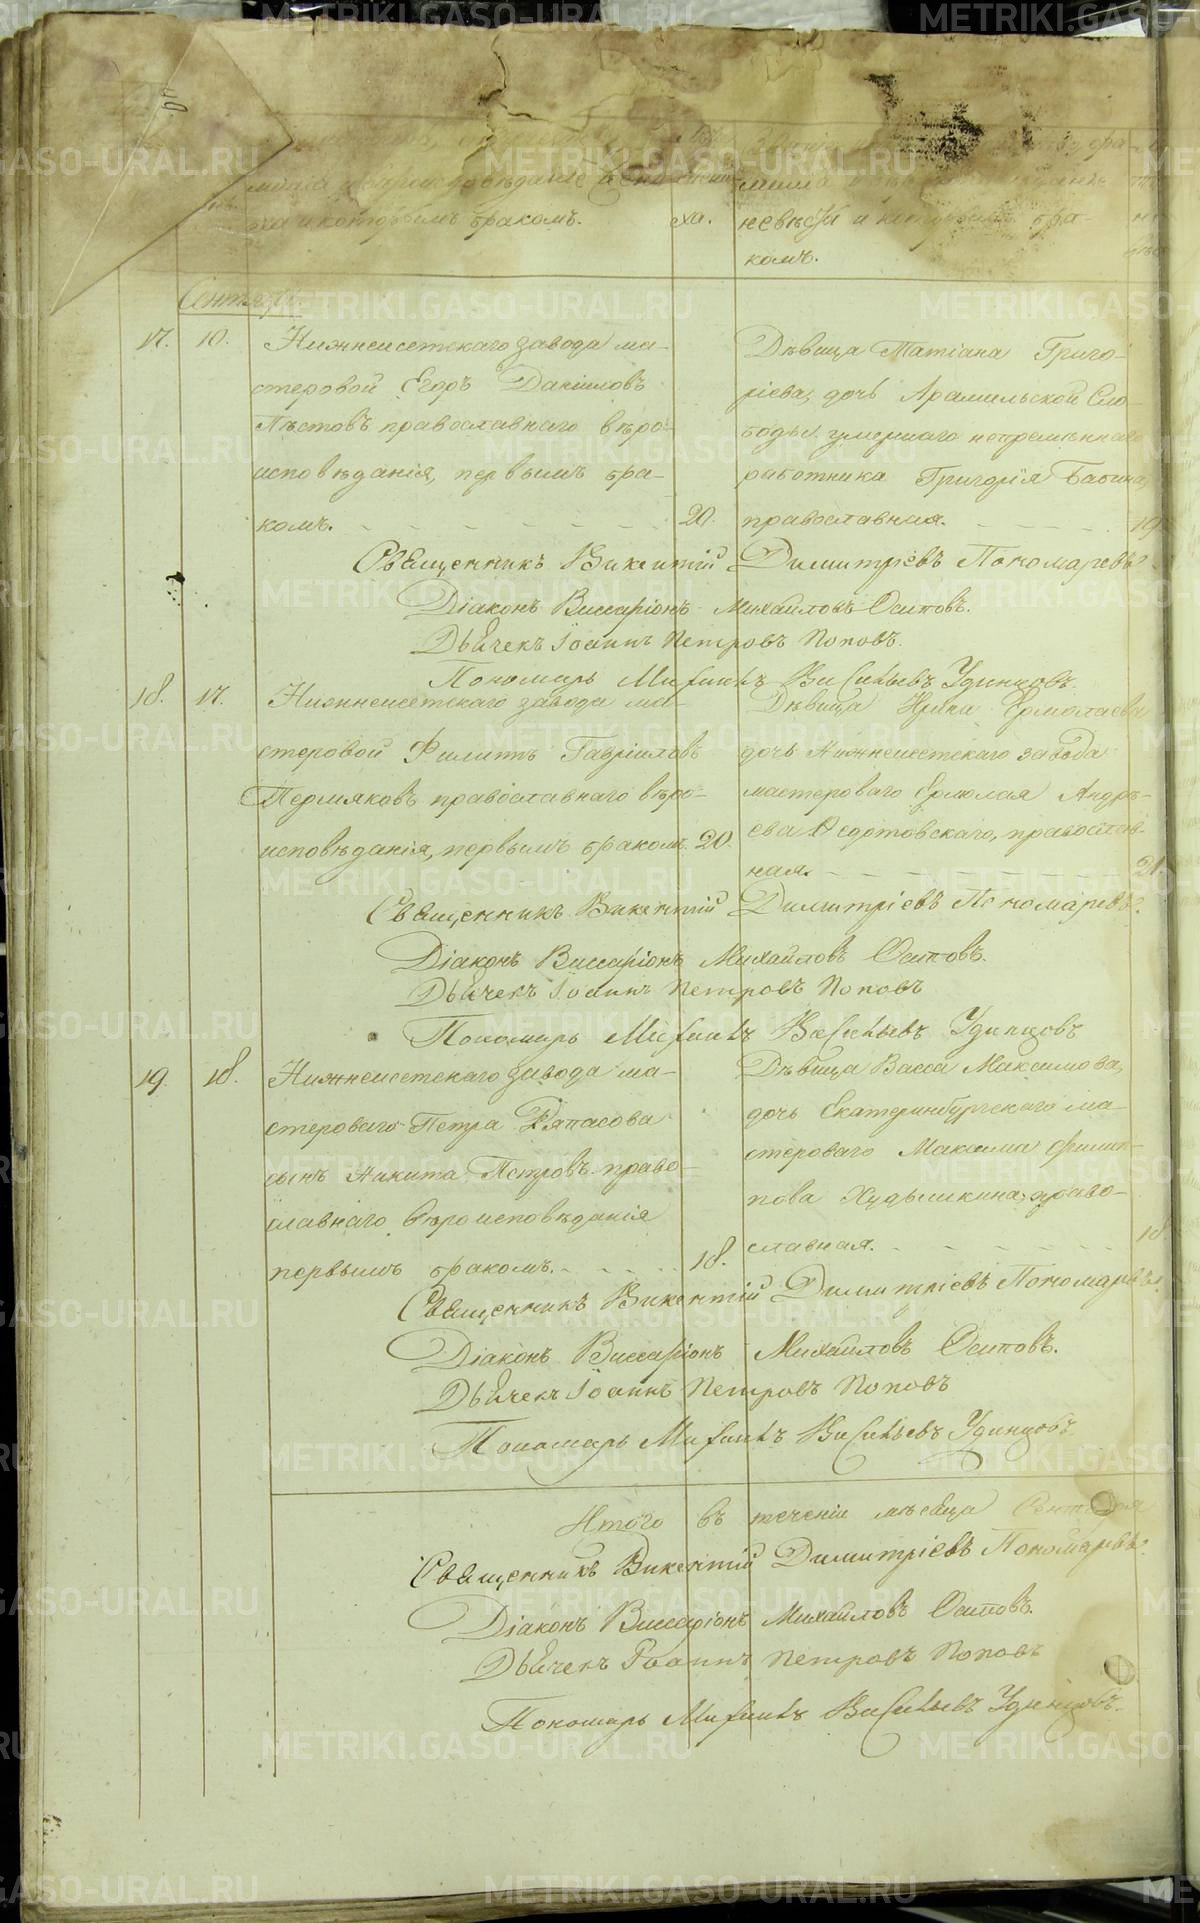 METRIKI.GASO-URAL.RU
исповѣданіе жени-
ха и которымъ бракомъ.
ха.
невѣсты и которымъ бра-
комъ.
Сентябрь.
17. 10. Нижнеисетскаго завода ма-
стеровой Егоръ Даніиловъ
православнаго вѣро-
исповѣданія, первымъ бра-
комъ. 20.
Дѣвица Татіана Григо-
ріева, дочь Арамильской Сло-
боды умершаго непремѣннаго
работника Григорія Бабина,
православная. 19
Священникъ Викентій Димитріевъ Пономаревъ.
Діаконъ Виссаріонъ Михайловъ Осиповъ.
Дьячекъ Іоаннъ Петровъ Поповъ.
Пономарь Васильевъ Удинцовъ.
18. 17. Нижнеисетскаго завода ма-
стеровой Филиппъ Гавріиловъ
Пермяковъ православнаго вѣро-
исповѣданія, первымъ бракомъ. 20.
Дѣвица Ермолаева
дочь Нижнеисетскаго завода
мастероваго Ермолая Андрѣ-
ева Ѳедотовскаго, православ-
ная. 21.
Священникъ Викентій Димитріевъ Пономаревъ.
Діаконъ Виссаріонъ Михайловъ Осиповъ.
Дьячекъ Іоаннъ Петровъ Поповъ
Пономарь Васильевъ Удинцовъ
19. 18. Нижнеисетскаго завода ма-
стероваго Петра Ряпасова
сынъ Никита Петровъ право-
славнаго вѣроисповѣданія
первымъ бракомъ. 18.
Дѣвица Васса Максимова,
дочь Екатеринбургскаго ма-
стероваго Максима Филип-
пова Худышкина, право-
славная. 18
Священникъ Викентій Димитріевъ Пономаревъ.
Діаконъ Виссаріонъ Михайловъ Осиповъ.
Дьячекъ Іоаннъ Петровъ Поповъ
Пономарь Васильевъ Удинцовъ
Итого въ теченіи мѣсяца Сентября
Священникъ Викентій Димитріевъ Пономаревъ.
Діаконъ Виссаріонъ Михайловъ Осиповъ.
Дьячекъ Іоаннъ Петровъ Поповъ
Пономарь Васильевъ Удинцовъ.